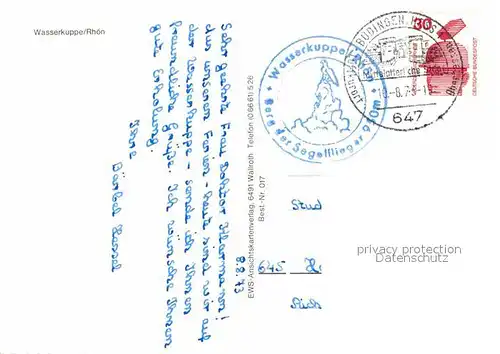 Wasserkuppe/Rhön
8.8.73
Sehr geehrte Frau Doktor
Aus unseren Ferien - heute sind wir auf
der Wasserkuppe - sende ich Ihnen
freundliche Grüße. Ich wünsche Ihnen
gute Erholung.
Ihre
Bärbel
EWS-Ansichtskartenverlag, 6491 Wallroth · Telefon (0 66 61) 5 26
Best.-Nr. 017
Wasserkuppe/Rhön
Berg der Segelflieger 950m
BÜDINGEN
647
30
DEUTSCHE BUNDESPOST
Stud
645 H
privacy protection
Datenschutz